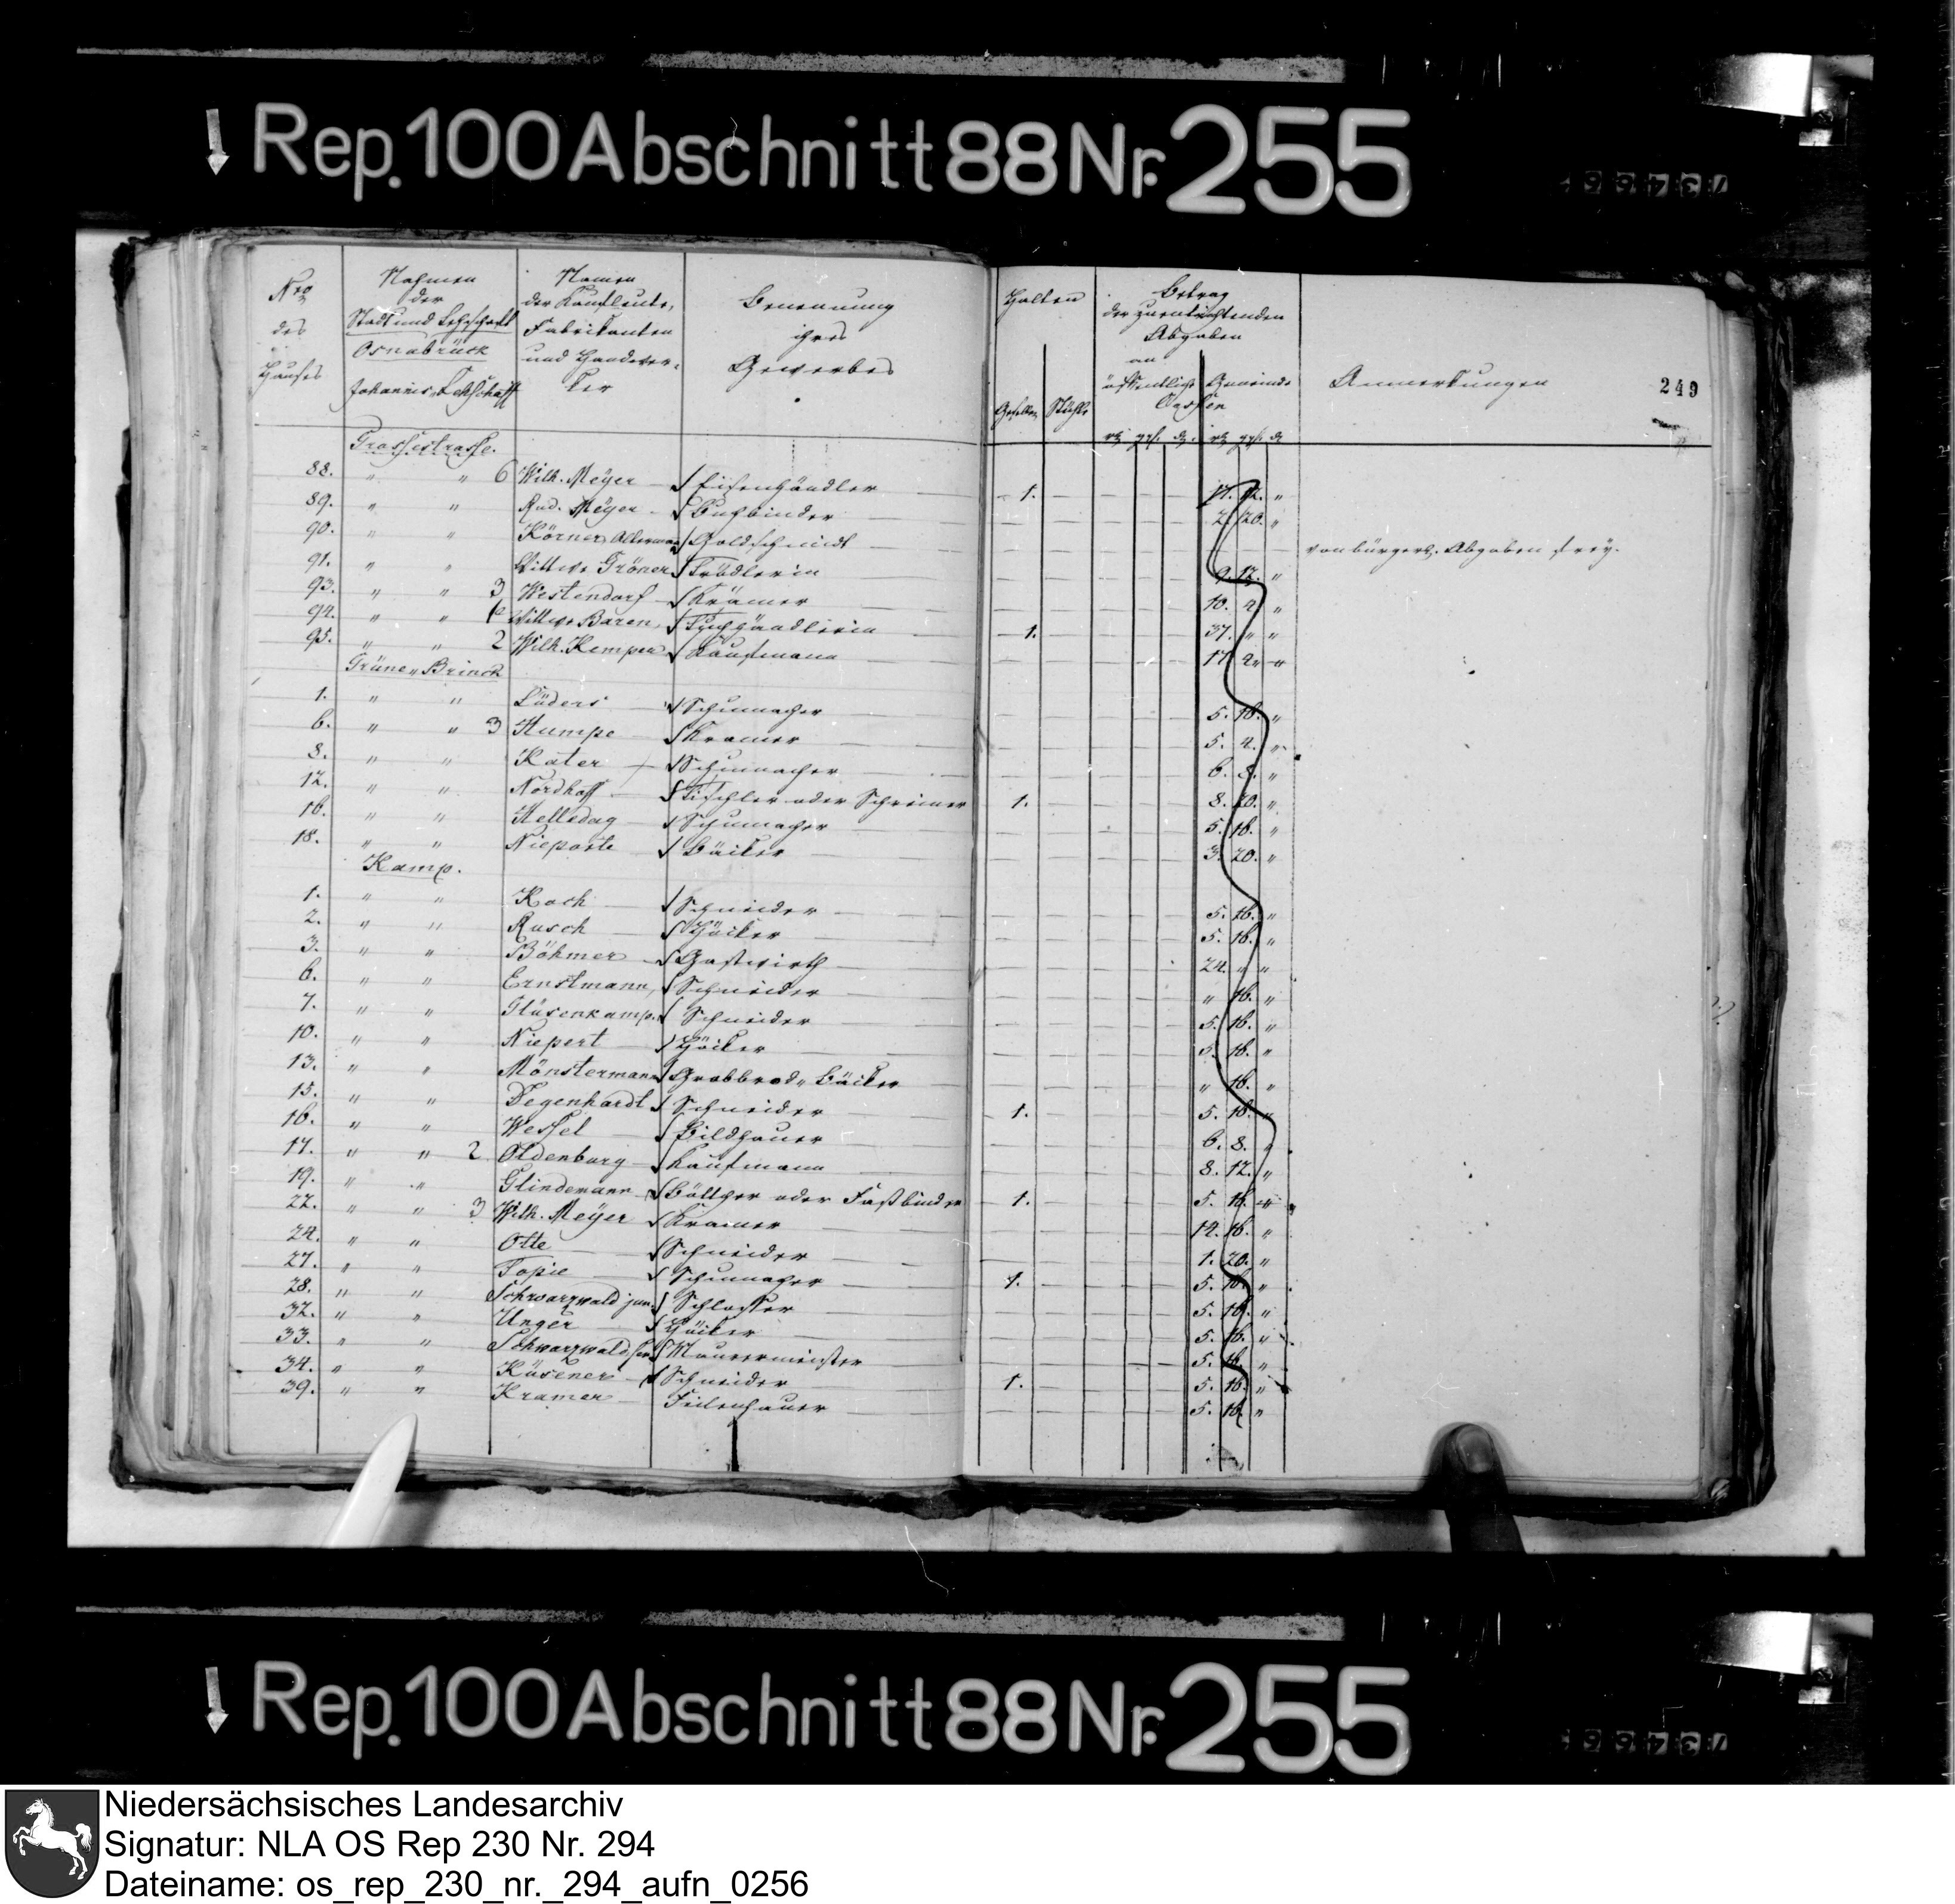 Rep. 100 Abschnitt 88 Nr. 255
Nro des Hauses
Nahmen der Stadt und Leyschaft Osnabrück Johannis Leyschaft
Namen der Kaufleute, Fabrikanten und Handwerker
Benennung ihres Gewerbes
Halten
Gesellen Stühle
Betrag der zu entrichtenden Abgaben an
öffentliche Gemeinde
Cassen
Anmerkungen
249
Grossestrasse.
88. " " 6 Wilh. Meyer Eisenhändler 1. 17. 12. "
89. " " Rud. Meyer Buchbinder 2. 20. "
90. " " Körner Altermann Goldschmidt von bürgerl. Abgaben frey.
91. " " Wittwe Tröner Trödlerin 9. 12. "
93. " " 3 Westendorf Krämer 10. 2. "
94. " " Wittwe Baren, Tuchhändlerin 1. 37. " "
95. " " 2 Wilh. Kemper Kaufmann 17.
Grüne " Brinck
1. " " Lüders Schumacher 5. 16. "
6. " " 3 Kumpe Kramer 5. 4. "
8. " " Kater Schumacher 6. 8. "
12. " " Nordhoff Tischler oder Schreiner 1. 8. 20. "
16. " " Helledag Schumacher 5. 16. "
18. " " Nieporte Bäcker 3. 20. "
Kamp.
1. " " Koch Schneider 5. 16. "
2. " " Rusch Höcker 5. 16. "
3. " " Böhmer Gastwirth 24. " "
6. " " Ernstmann, Schneider " 16. "
7. " " Glüsenkamp. Schneider 5. 16. "
10. " " Niepert Höcker 5. 16. "
13. " " Mönstermann Grobbrod " Bäcker " 16. "
15. " " Degenhardt Schneider 1. 5. 16. "
16. " " Wessel Bildhauer 6. 8. "
17. " " 2 Oldenburg Kaufmann 8. 12. "
19. " " Glindemann Böttcher oder Faßbinder 1. 5. 16. "
22. " " 3 Wilh. Meyer Kramer 14. 16. "
24. " " Otte Schneider 1. 20. "
27. " " Topie Schumacher 1. 5. 16. "
28. " " Schwarzwald jun. Schlosser 5. 16. "
32. " " Unger Höcker 5. 16. "
33. " " Schwarzwald sen. Mauermeister 5. 16. "
34. " " Käsener Schneider 1. 5. 16. "
39. " " Kramer Feilenhauer 5. 16. "
Rep. 100 Abschnitt 88 Nr. 255
Niedersächsisches Landesarchiv
Signatur: NLA OS Rep 230 Nr. 294
Dateiname: os_rep_230_nr._294_aufn_0256